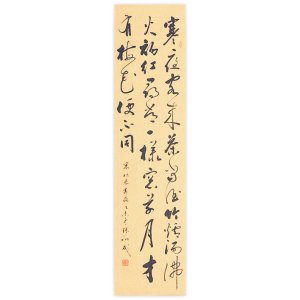 寒夜客來茶當酒竹爐湯沸
火初紅尋常一樣窗前月才
有梅花便不同
宋杜耒寒夜乙未